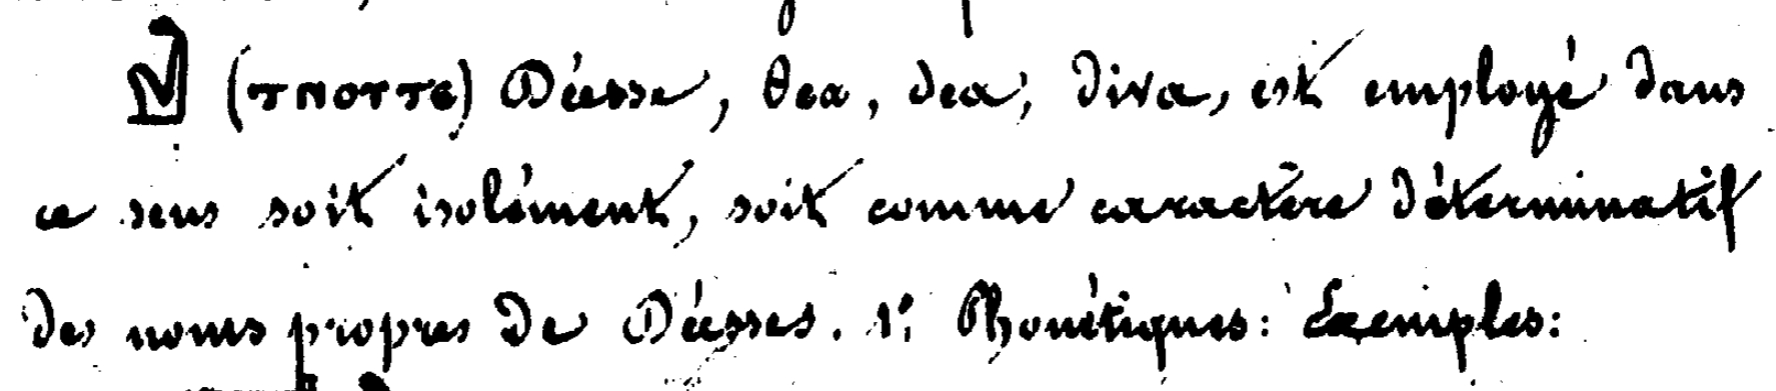 (ⲧⲛⲟⲩⲧⲉ) Déesse, θea, dea, diva, est employé dans
ce sens soit isolément, soit comme caractère déterminatif
des noms propres de Déesses. 1º Phonétiques: Exemples: